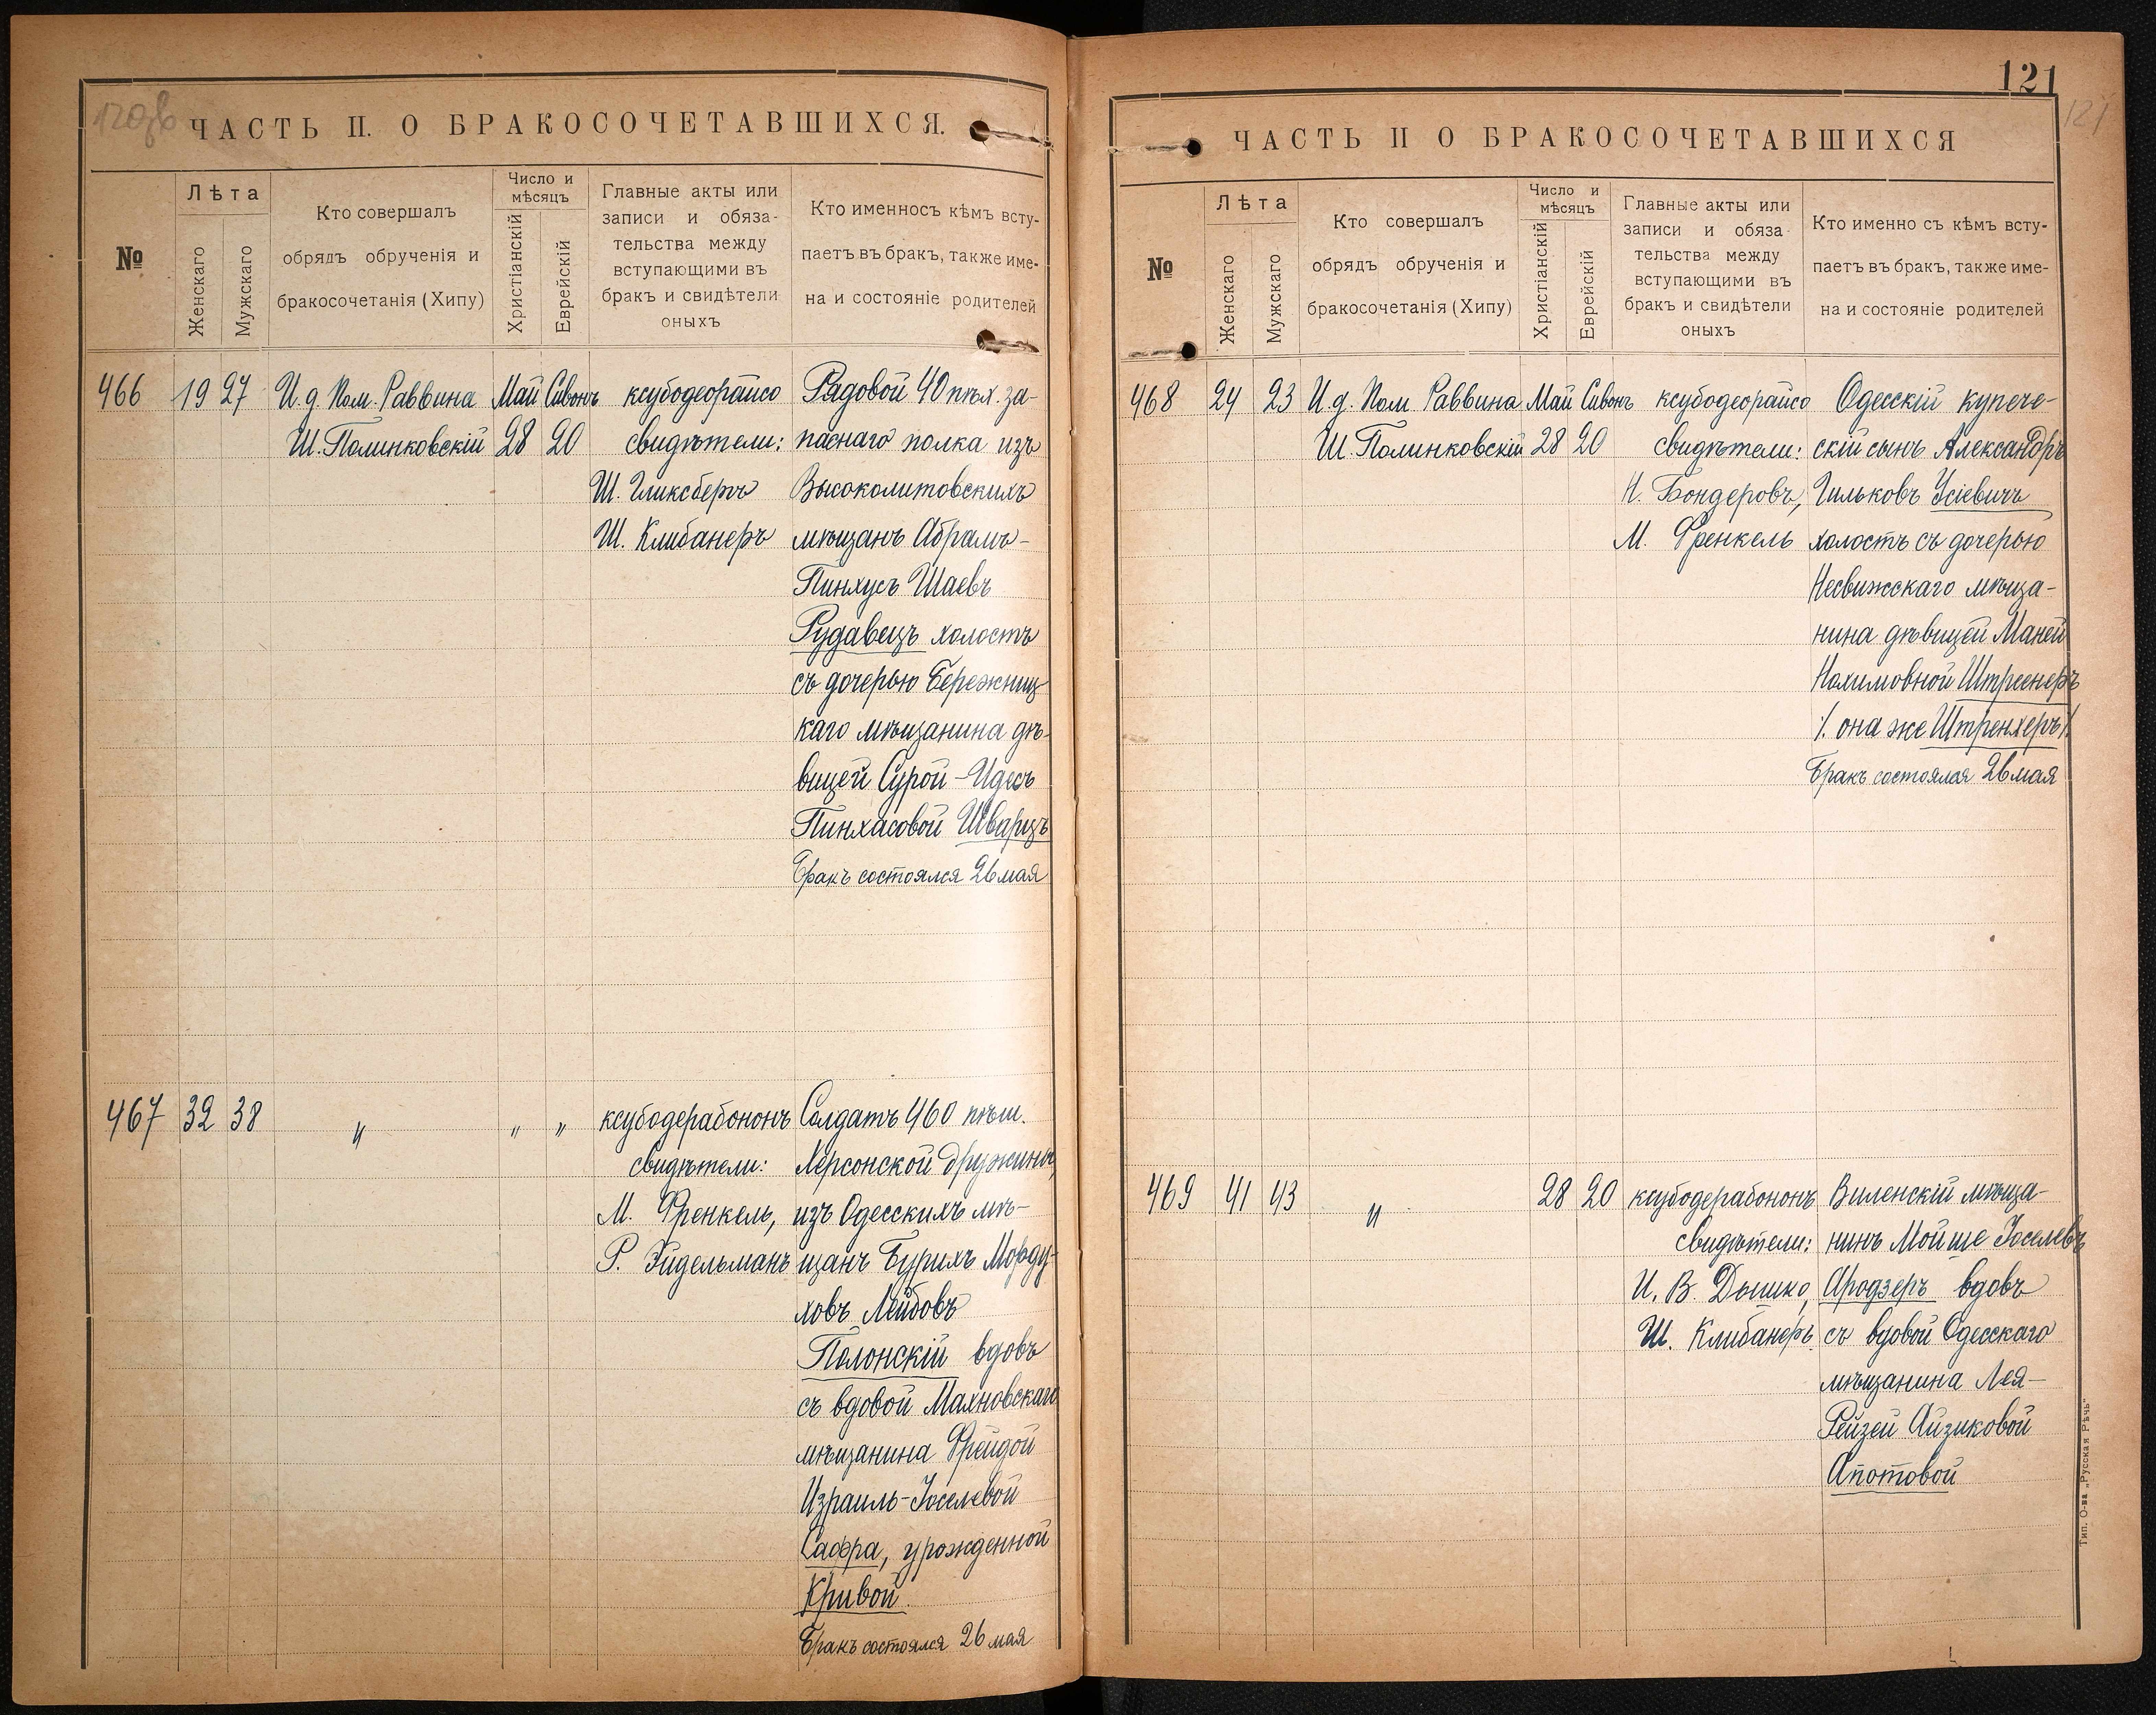 120об
ЧАСТЬ II. О БРАКОСОЧЕТАВШИХСЯ.
№
Лѣта
Женскаго
Мужскаго
Кто совершалъ
обрядъ обрученія и
бракосочетанія (Хипу)
Число и
мѣсяцъ
Христіанскій
Еврейскій
Главные акты или
записи и обяза-
тельства между
вступающими въ
бракъ и свидѣтели
оныхъ
Кто именносъ кѣмъ всту-
паетъ въ бракъ, также име-
на и состояніе родителей
466 19 27 И.д. Пом. Раввина Май Сивонъ ксубодеорайсо Рядовой 40 пѣх. за-
Ш. Полинковскій 28 20 свидѣтели: паснаго полка изъ
Ш. Гликсбергъ Высоколитовскихъ
Ш. Клибанеръ мѣщанъ Абрамъ-
Пинхусъ Шаевъ
Рудавецъ холостъ
съ дочерью Бережниц-
каго мѣщанина дѣ-
вицей Сурой-Идесъ
Пинхасовой Шварцъ
Бракъ состоялся 26 мая
467 32 38 " " " ксубодерабононъ Солдатъ 460 пѣш.
свидѣтели: Херсонской дружины,
М. Френкель, изъ Одесскихъ мѣ-
Р. Эйдельманъ щанъ Бурихъ Морду-
ховъ Лейбовъ
Полонскій вдовъ
съ вдовой Махновскаго
мѣщанина Фрейдой
Израиль-Іоселевой
Сафра, урожденной
Кривой.
Бракъ состоялся 26 мая
121
121
ЧАСТЬ II О БРАКОСОЧЕТАВШИХСЯ
№
Лѣта
Женскаго
Мужскаго
Кто совершалъ
обрядъ обрученія и
бракосочетанія (Хипу)
Число и
мѣсяцъ
Христіанскій
Еврейскій
Главные акты или
записи и обяза-
тельства между
вступающими въ
бракъ и свидѣтели
оныхъ
Кто именно съ кѣмъ всту-
паетъ въ бракъ, также име-
на и состояніе родителей
468 24 23 И.д. Пом Раввина Май Сивонъ ксубодеорайсо Одесскій купече-
Ш. Полинковскій 28 20 свидѣтели: скій сынъ Александръ
Н. Бондеровъ, Гильковъ Усіевичъ
М. Френкель холостъ съ дочерью
Несвижскаго мѣща-
нина дѣвицей Маней
Нохимовной
/. она же Штренхеръ /.
Бракъ состоялся 26 мая
469 41 43 " 28 20 ксубодерабононъ Виленскій мѣща-
свидѣтели: нинъ Мойше Іоселевъ
И. В. Дышко, Ародзеръ вдовъ
Ш. Клибанеръ съ вдовой Одесскаго
мѣщанина Лея-
Рейзей Айзиковой
Апотовой
Тип. О-ва „Русская Рѣчь"